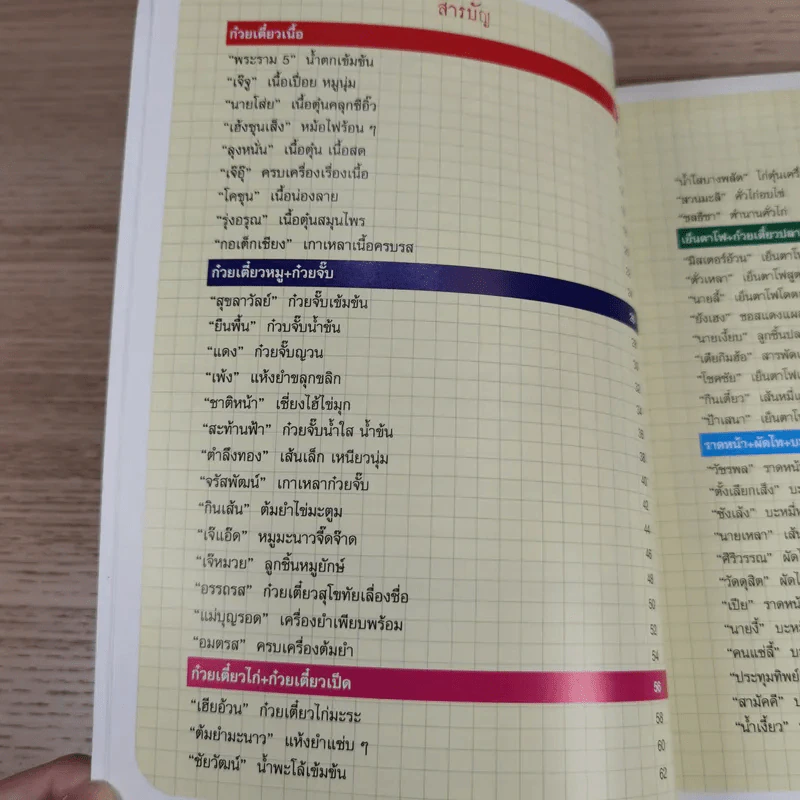 สารบัญ
ก๋วยเตี๋ยวเนื้อ
“พระราม 5” น้ำตกเข้มข้น
“เจ๊ฐ” เนื้อเปื่อย หมูนุ่ม
“นายโส่ย” เนื้อตุ๋นคลุกซีอิ๊ว
“เฮ้งชุนเส็ง” หม้อไฟร้อน ๆ
“ลุงหนั่น” เนื้อตุ๋น เนื้อสด
“เจ๊อุ๊” ครบเครื่องเรื่องเนื้อ
“โคขุน” เนื้อน่องลาย
“รุ่งอรุณ” เนื้อตุ๋นสมุนไพร
“กอเต็กเชียง” เกาเหลาเนื้อครบรส
ก๋วยเตี๋ยวหมู+ก๋วยจั๊บ
“สุขลาวัลย์” ก๋วยจั๊บเข้มข้น
“ยืนพื้น” ก๋วบจั๊บน้ำข้น
“แดง” ก๋วยจั๊บญวน
“เพ้ง” แห้งยำขลุกขลิก 32
“ชาติหน้า” เซี่ยงไฮ้ไข่มุก 34
“สะท้านฟ้า” ก๋วยจั๊บน้ำใส น้ำข้น 36
“ตำลึงทอง” เส้นเล็ก เหนียวนุ่ม 38
“จรัสพัฒน์” เกาเหลาก๋วยจั๊บ 40
“กินเส้น” ต้มยำไข่มะตูม 42
“เจ๊แอ๊ด” หมูมะนาวจี๊ดจ๊าด 44
“เจ๊หมวย” ลูกชิ้นหมูยักษ์ 46
“อรรถรส” ก๋วยเตี๋ยวสุโขทัยเลื่องชื่อ 48
“แม่บุญรอด” เครื่องยำเพียบพร้อม 50
“อมตรส” ครบเครื่องต้มยำ 52
54
ก๋วยเตี๋ยวไก่+ก๋วยเตี๋ยวเป็ด 56
“เฮียอ้วน” ก๋วยเตี๋ยวไก่มะระ 58
“ต้มยำมะนาว” แห้งยำแซ่บ ๆ 60
“ชัยวัฒน์” น้ำพะโล้เข้มข้น 62
“น้ำใสบางพลัด” ไก่ตุ๋น
“สวนมะลิ” คั่วไก่อบไข่
ตำนานคั่วไก่
เย็นตาโฟ+ก๋วยเตี๋ยวปลา
“มิสเตอร์อ้วน”
“ตั๋วเหลา” เย็นตาโฟสูต
“นายลี้” เย็นตาโฟ
“ยังเฮง” ซอสแดง
“นายเงี้ยบ” ลูกชิ้นปล
“เตียกิมฮ้อ”
“โชคชัย” เย็นตาโฟ
“กินเตี๋ยว” เส้นหมี่
“ป้าเสนา” เย็นตาโ
ราดหน้า+ผัดไท+
“วัชรพล” ราดหน้
“ตั้งเลียกเส็ง”
“ซังเล้ง” บะหมี่
“นายเหลา” เส้น
“ศิริวรรณ” ผัดไ
“วัดดุสิต” ผัดไ
“เปีย” ราดหน้
“นายงี้” บะห
“คนแซ่ลี้”
“ประทุมทิพย์
“สามัคคี”
“น้ำเงี้ยว”